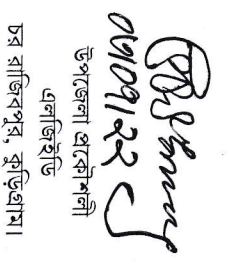 ০৭।০৭।২২
উপজেলা প্রকৌশলী
এলজিইডি
চর রাজিবপুর, কুড়িগ্রাম।